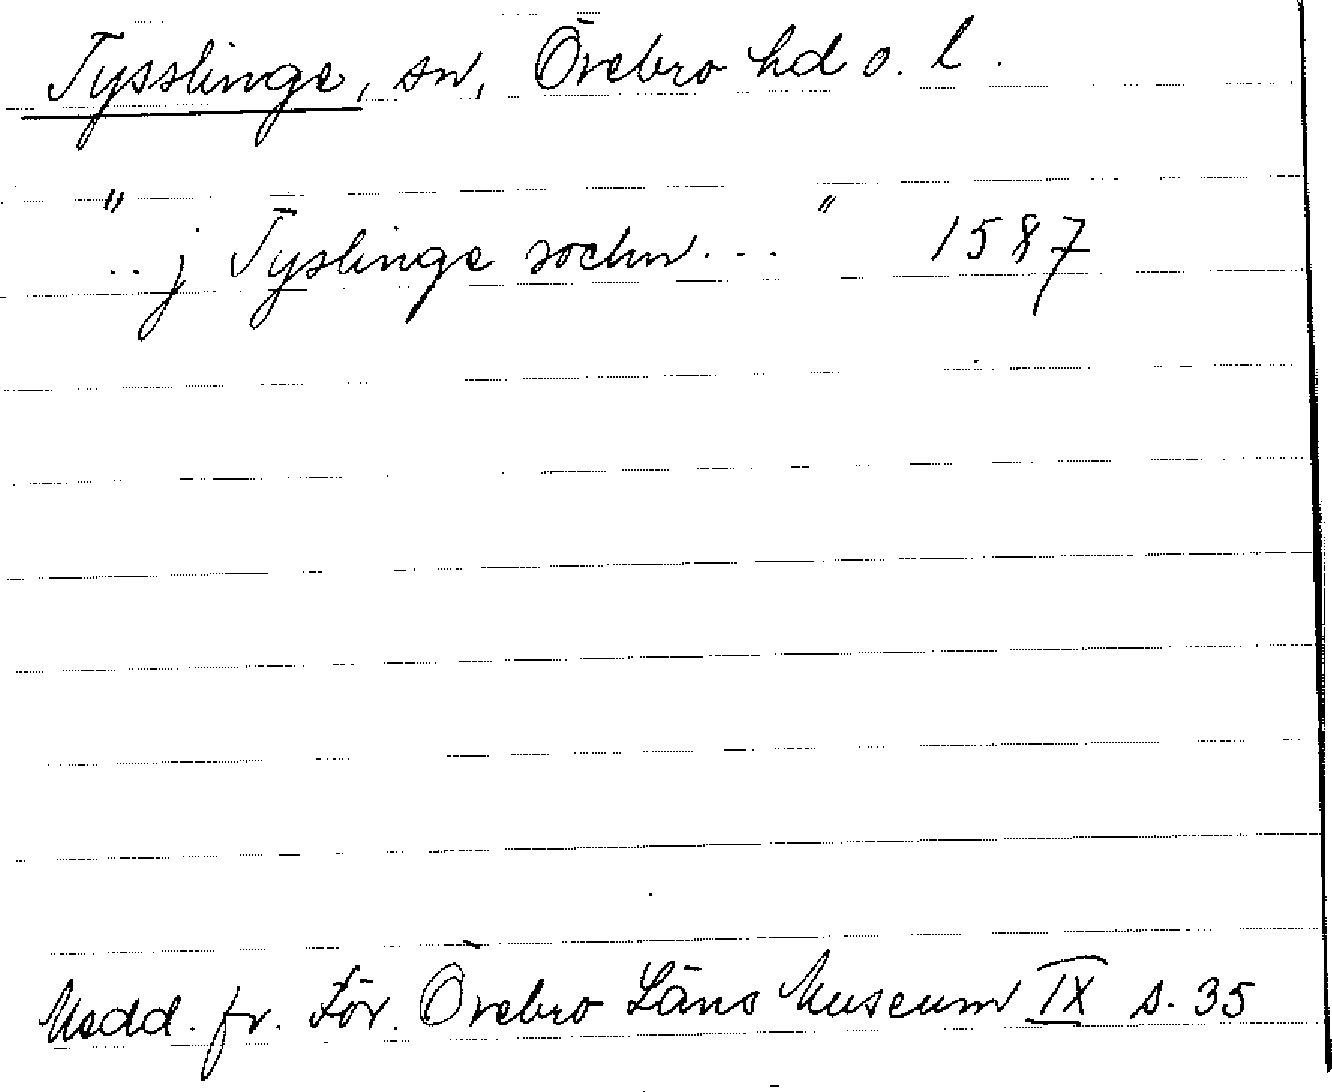 Tysslinge, sn, Örebro hd o. l.
"..j Tyslinge sochn..." 1587
Medd. fr. För. Örebro Läns Museum IX s. 35